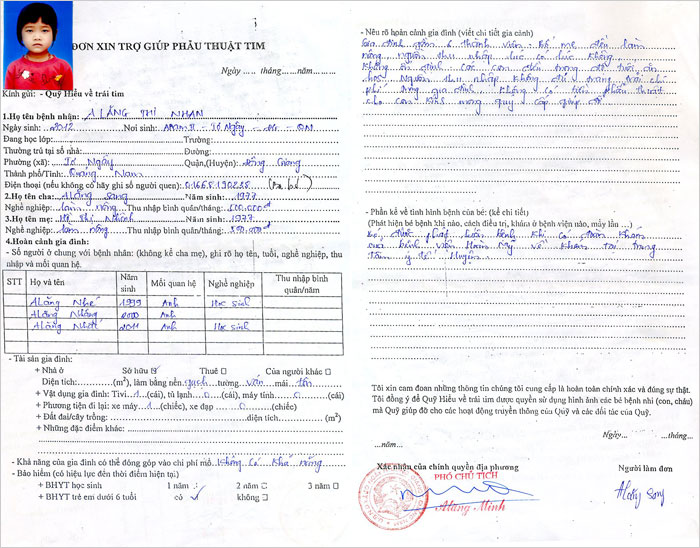 ĐƠN XIN TRỢ GIÚP PHẪU THUẬT TIM
Ngày ..... tháng...... năm..........
Kính gửi: - Quỹ Hiểu về trái tim
1.Họ tên bệnh nhân: ALĂNG THỊ NHAN
Ngày sinh: 2012 Nơi sinh:
Đang học lớp: Trường:
Thường trú tại số nhà: Đường:
Phường (xã): Tơ Ngây Quận,(Huyện): Đông Giang
Thành phố/Tỉnh: Quảng Nam
Điện thoại (nếu không có hãy ghi số người quen):
2.Họ tên cha: Alăng Sang Năm sinh: 1977
Nghề nghiệp: làm nông Thu nhập bình quân/tháng:
3.Họ tên mẹ: Năm sinh: 1977
Nghề nghiệp: làm nông Thu nhập bình quân/tháng:
4.Hoàn cảnh gia đình:
- Số người ở chung với bệnh nhân: (không kể cha mẹ), ghi rõ họ tên, tuổi, nghề nghiệp, thu
nhập và mối quan hệ.
STT Họ và tên Năm sinh Mối quan hệ Nghề nghiệp Thu nhập bình quân/năm
Alăng Nhé 1999 Anh Học sinh
Alăng 2000 Anh
Alăng 2011 Anh Học sinh
- Tài sản gia đình:
+ Nhà ở Sở hữu Thuê Của người khác
Diện tích:............(m²), làm bằng nền gạch tường ván mái tôn
+ Vật dụng gia đình: Tivi 1 (cái), tủ lạnh 0 (cái), máy tính 0 (cái)
+ Phương tiện đi lại: xe máy 1 (chiếc), xe đạp 0 (chiếc)
+ Đất đai/cây trồng: diện tích (m²)
+ Những đặc điểm khác:
- Khả năng của gia đình có thể đóng góp vào chi phí mổ: Không có khả năng
- Bảo hiểm (có hiệu lực đến thời điểm hiện tại)
+ BHYT học sinh 1 năm 2 năm 3 năm
+ BHYT trẻ em dưới 6 tuổi có không
- Nêu rõ hoàn cảnh gia đình (viết chi tiết gia cảnh)
Gia đình gồm 6 thành viên. Bố mẹ đều làm
nông, nguồn thu nhập lúc có lúc không
không ổn định các con còn trong độ tuổi ăn
học. Nguồn thu nhập không đủ trang trải chi
phí trong gia đình. Không có tiền phẫu thuật
cho con. Kính mong quý cấp giúp đỡ.
- Phần kể về tình hình bệnh của bé: (kể chi tiết)
(Phát hiện bệnh khi nào, cách điều trị, khám ở bệnh viện nào, mấy lần ...)
bệnh khi có đoàn khám
bệnh viện Hoàn Mỹ về khám tại trung
tâm y tế huyện.
Tôi xin cam đoan những thông tin chúng tôi cung cấp là hoàn toàn chính xác và đúng sự thật.
Tôi đồng ý để Quỹ Hiểu về trái tim được quyền sử dụng hình ảnh các bé bệnh nhi (con, cháu)
mà Quỹ giúp đỡ cho các hoạt động truyền thông của Quỹ và các đối tác của Quỹ.
Ngày..... ...tháng......
...năm.....
Xác nhận của chính quyền địa phương Người làm đơn
PHÓ CHỦ TỊCH
Alăng Minh Alăng Sang